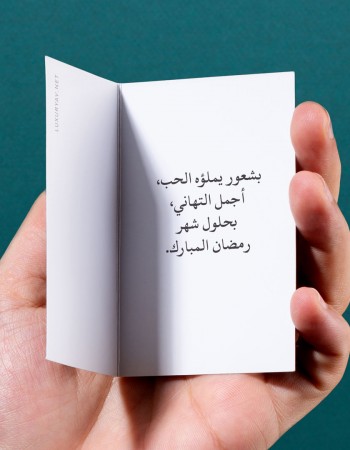 LUXURYBY.NET
بشعور يملؤه الحب،
أجمل التهاني،
بحلول شهر
رمضان المبارك.